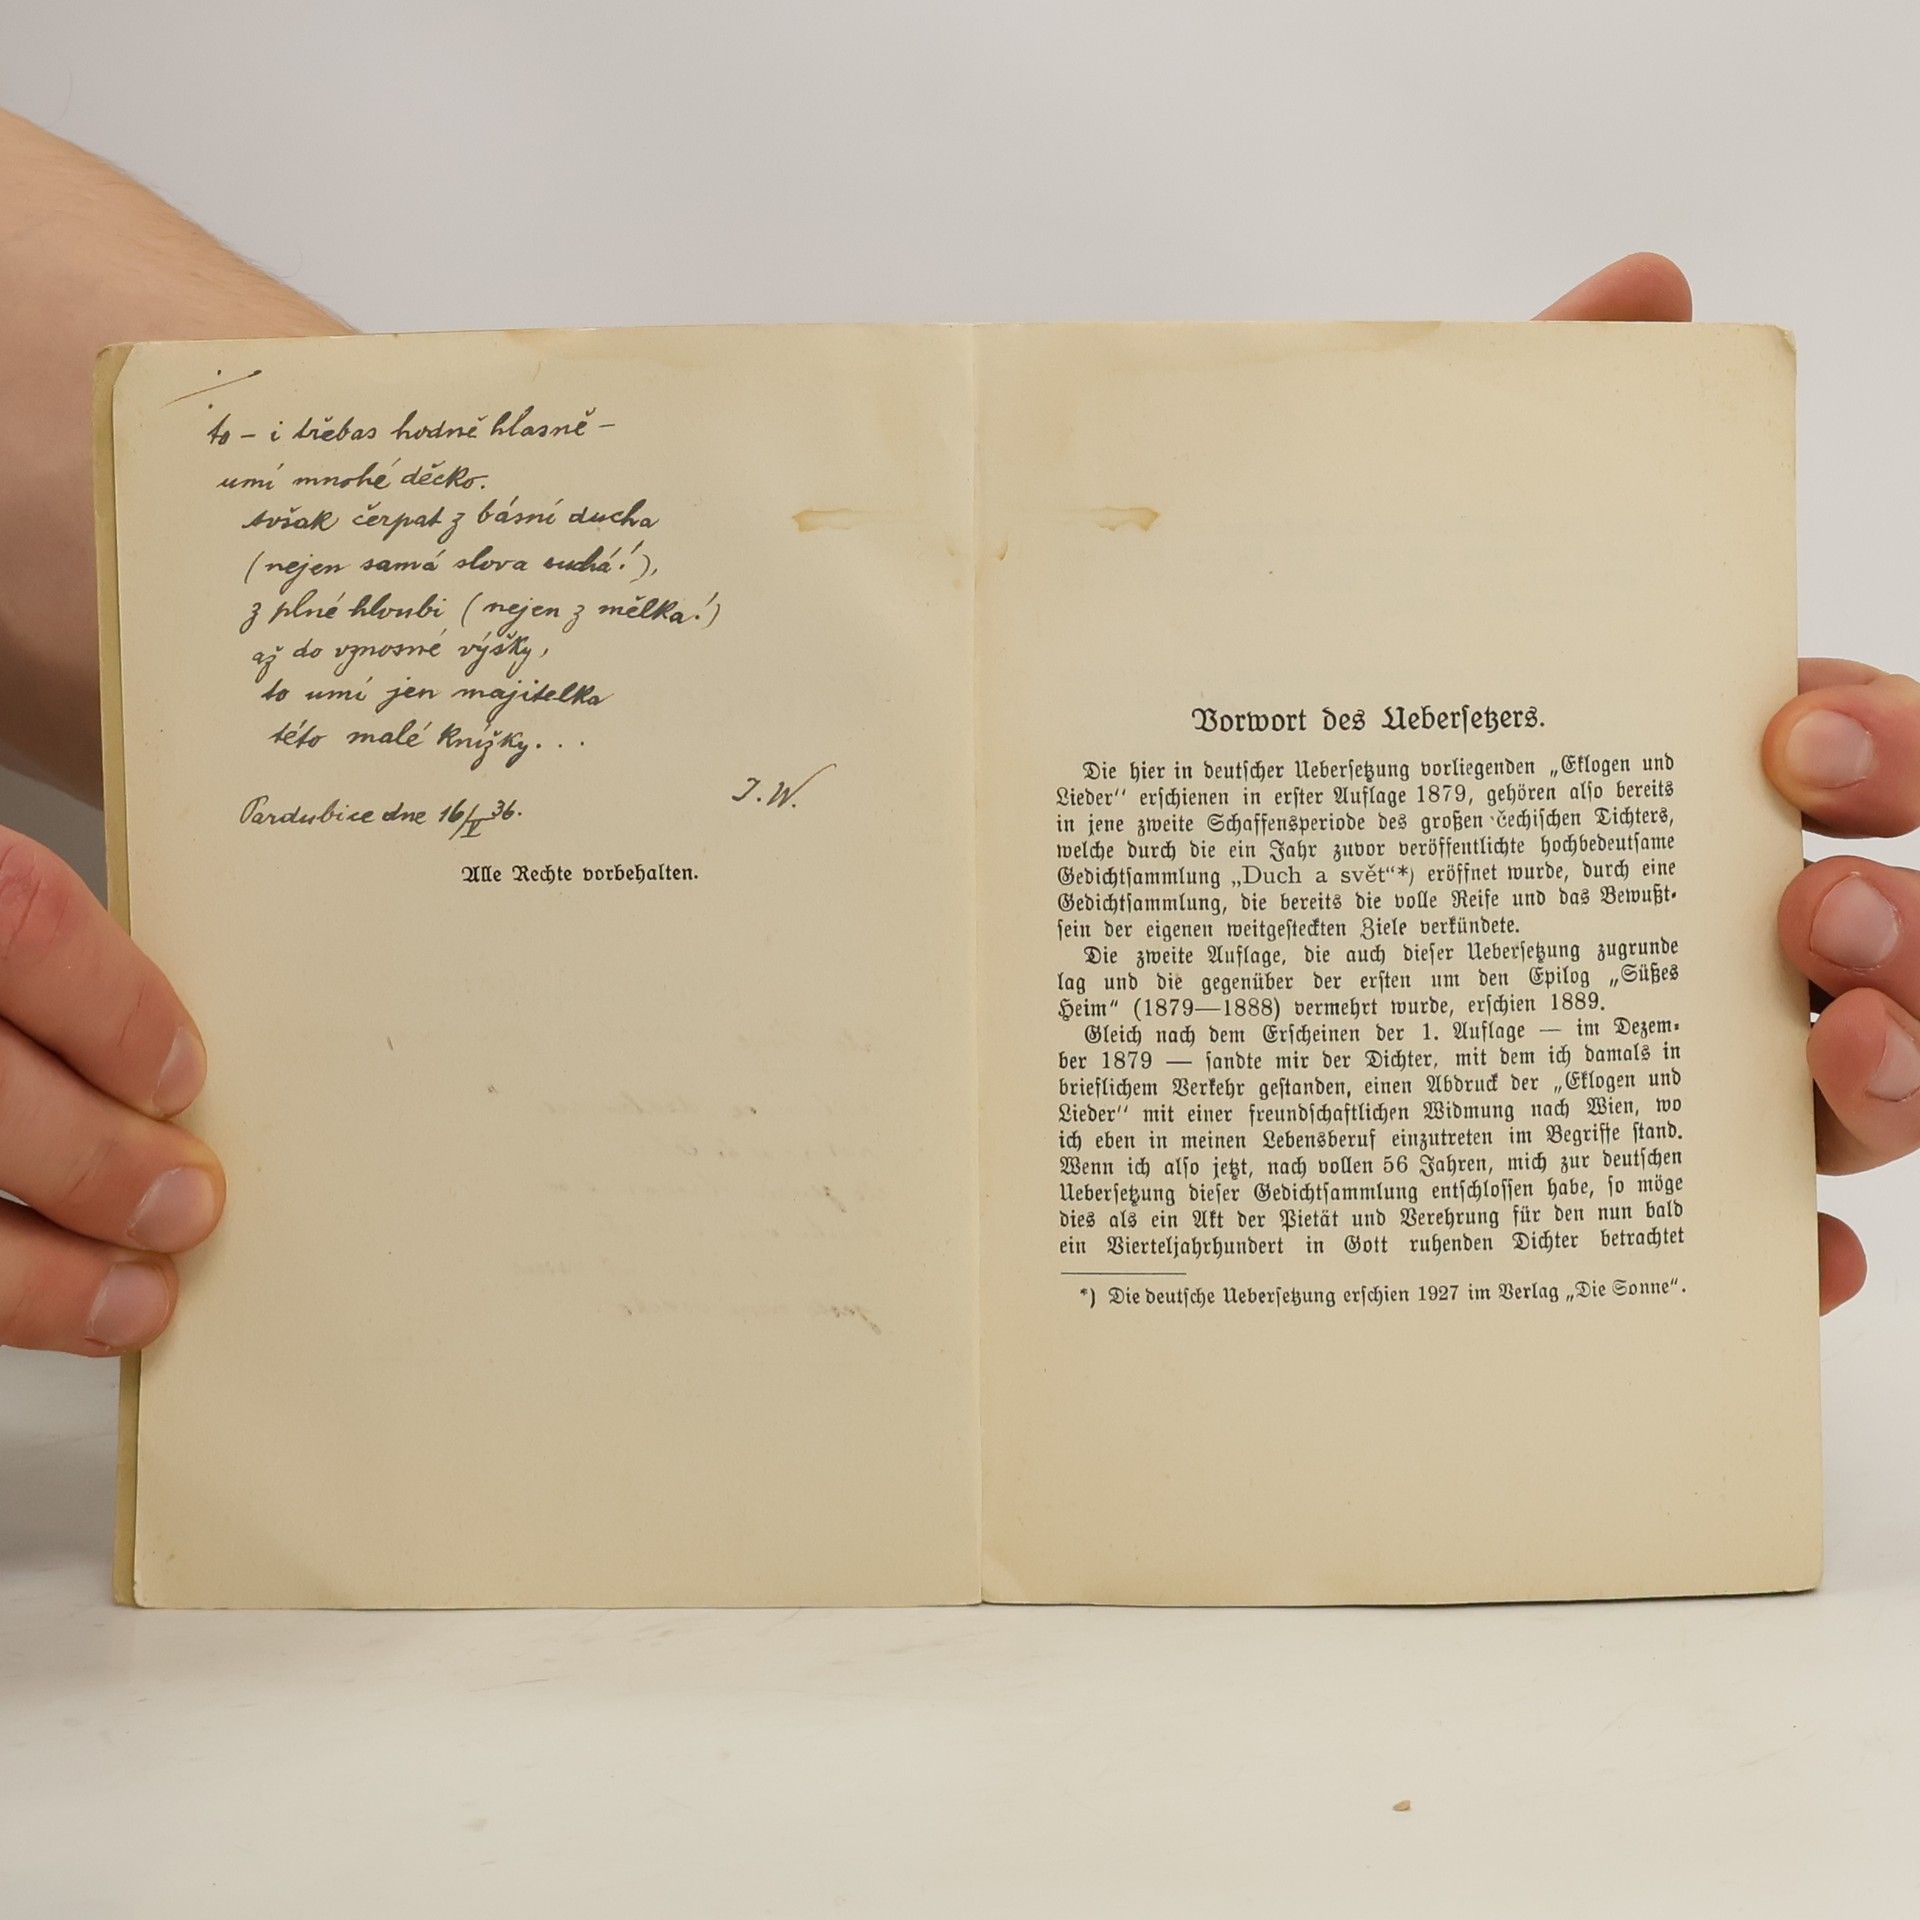 to – i třebas hodně hlasně –
umí mnohé děcko.
Avšak čerpat z básní ducha
(nejen samá slova suchá!),
z plné hloubi (nejen z mělka!)
až do vznosné výšky,
to umí jen majitelka
této malé knížky...
J. W.
Pardubice dne 16/V 36.
Alle Rechte vorbehalten.
Vorwort des Uebersetzers.
Die hier in deutscher Uebersetzung vorliegenden „Eklogen und
Lieder“ erschienen in erster Auflage 1879, gehören also bereits
in jene zweite Schaffensperiode des großen čechischen Dichters,
welche durch die ein Jahr zuvor veröffentlichte hochbedeutsame
Gedichtsammlung „Duch a svět“*) eröffnet wurde, durch eine
Gedichtsammlung, die bereits die volle Reife und das Bewußt-
sein der eigenen weitgesteckten Ziele verkündete.
Die zweite Auflage, die auch dieser Uebersetzung zugrunde
lag und die gegenüber der ersten um den Epilog „Süßes
Heim“ (1879—1888) vermehrt wurde, erschien 1889.
Gleich nach dem Erscheinen der 1. Auflage — im Dezem-
ber 1879 — sandte mir der Dichter, mit dem ich damals in
brieflichem Verkehr gestanden, einen Abdruck der „Eklogen und
Lieder“ mit einer freundschaftlichen Widmung nach Wien, wo
ich eben in meinen Lebensberuf einzutreten im Begriffe stand.
Wenn ich also jetzt, nach vollen 56 Jahren, mich zur deutschen
Uebersetzung dieser Gedichtsammlung entschlossen habe, so möge
dies als ein Akt der Pietät und Verehrung für den nun bald
ein Vierteljahrhundert in Gott ruhenden Dichter betrachtet
*) Die deutsche Uebersetzung erschien 1927 im Verlag „Die Sonne“.